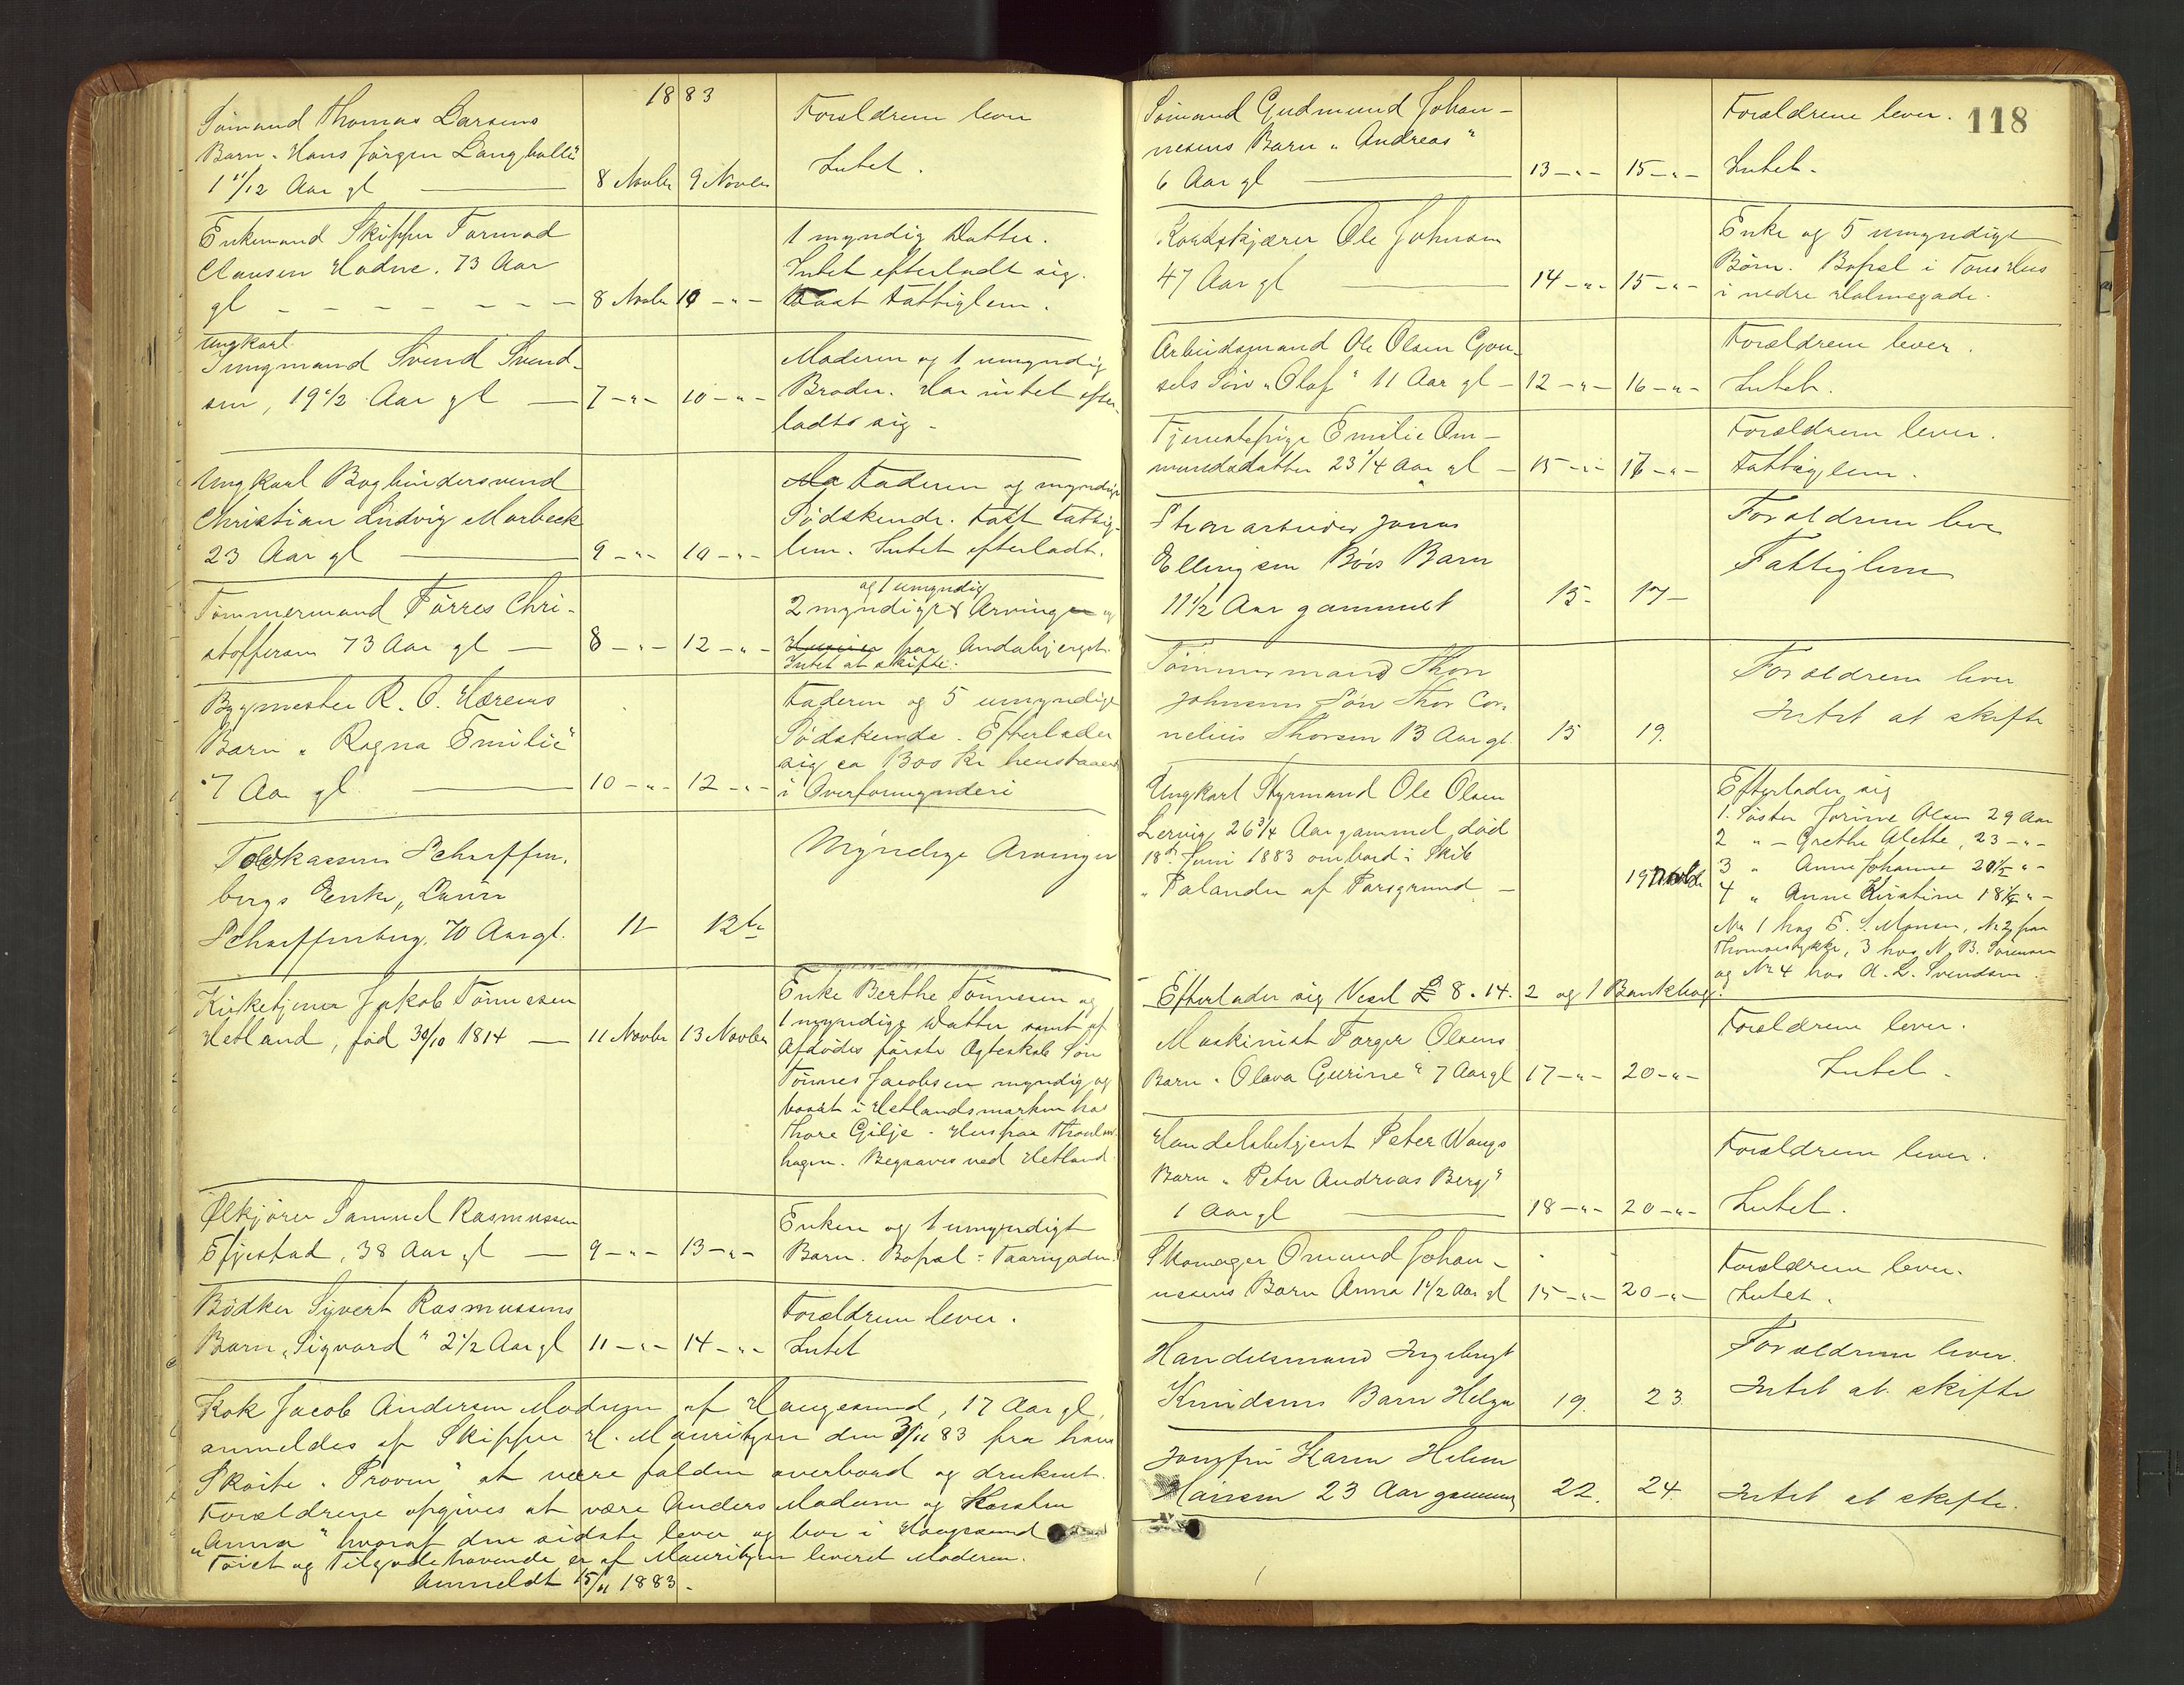 1883
Sömand Thomas Larsens
Barn. Hans Jörgen Langballe"
1 11/12 Aar gl — 8 Novbr 9 Novbr
Foreldrene lever
Intet.
Enkemand Skipper Tormod
Clausen Hadne. 73 Aar
gl - - - - - - 8 Novbr 10 - " -
1 myndig Datter.
Intet efterladt sig.
Fast Fattiglem.
Ungkarl
Jungmand Svend Svend-
sen, 19 1/2 Aar gl — 7 - " - 10 - " -
Moderen og 1 umyndig
Broder. Har intet efter-
ladt sig -
Ungkarl Bogbindersvend
Christian Ludvig Morbeck
23 Aar gl — 9 - " - 10 - " -
Ma Faderen og myndige
Södskende. Fast Fattig-
lem. Intet efterladt.
Tömmermand Törres Chri-
stoffersen 73 Aar gl — 8 - " - 12 - " -
og 1 umyndig
2 myndige Arvinger og
paa Andabjerget.
Intet at skifte.
Bygmester R. O. Hærems
Barn "Ragna Emilie"
7 Aar gl — 10 - " - 12 - " -
Faderen og 5 umyndige
Södskende. Efterlader
sig ca 1300 Kr henstaaende
i Overformynderi
Toldkasserer Scharffen-
bergs Enke,
Scharffenberg, 70 Aar gl. 11 12te
Myndige Arvinger
Kirketjener Jakob Tönnesen
Hetland, född 30/10 1814 — 11 Novbr 13 Novbr
Enke Berthe Tönnesen og
1 myndig Datter samt af
Afdödes förste Ægteskab Sön
Tönnes Jacobsen myndig og
bosat i Hetlandsmarken hos
Thore Gilje - Hus paa
hagen. Begraves ved Hetland.
Ölkjörer Samuel Rasmussen
Efjestad, 38 Aar gl — 9 - " - 13 - " -
Enken og 1 umyndigt
Barn. Bopæl: Taarngaden.
Bödker Sivert Rasmussens
Barn "Sigvard" 2 1/2 Aar gl 11 - " - 14 - " -
Foreldrene lever.
Intet
Kok Jacob Andersen Modum af Haugesund, 17 Aar gl,
anmeldes af Skipper H. Mauritzen den 3/11 83 fra hans
Skoite "Proven" at være falden overbord og druknet.
Foreldrene opgives at være Anders Modum og Karsten
"Anna" hvoraf den sidste lever og bor i Haugesund
Töiet og Tilgodehavende er af Mauritzen leveret Moderen.
Anmeldt 15/11 1883.-
118
Sömand Gudmund Johan-
nesens Barn "Andreas"
6 Aar gl — 13 - " - 15 - " -
Foreldrene lever.
Intet.
Ole Johnsen
47 Aar gl — 14 - " - 15 - " -
Enke og 5 umyndige
Börn. Bopæl i
i nedre Holmegade.
Arbeidsmand Ole Olsen Gjou-
sels Sön "Olaf" 11 Aar gl - 12 - " - 16 - " -
Foreldrene lever.
Intet.
Tjenestepige Emilie Om-
mundsdatter 23 1/4 Aar gl - 15 - " - 16 - " -
Foreldrene lever.
Fattiglem.
Jonas
Ellingsen Böes Barn
11 1/2 Aar gammelt 15 - 17 -
Foreldrene leve
Fattiglem
Tömmermand Thore
Johnsens Sön Thor Cor-
nelius Thorsen 13 Aar gl. 15 19.
Foreldrene lever
Intet at skifte
Ungkarl Styrmand Ole Olsen
Lervig, 26 3/4 Aar gammel, död
18de Juni 1883 ombord i Skib
"Palander af Porsgrund - 19 Novbr
Efterlader sig
1. Söster Jorine Olsen 29 Aar
2 " - Grethe Alette, 23 - " -
3 " Anne Johanne 20 1/2 " -
4 " Anne Kirstine 18 1/4 " -
No 1 hos E. S. Monsen, No 2 paa
Thomasstykke, 3 hos N. B. Sörensen
og No 4 hos A. L. Svendsen.
Efterlader sig Vexel £ 8.14.2 og 1 Bankbog.
Maskinist Torger Olsens
Barn "Olava Gurine" 7 Aar gl 17 - " - 20 - " -
Foreldrene lever.
Intet -
Handelsbetjent Peter Wangs
Barn "Peter Andreas Berg"
1 Aar gl — 18 - " - 20 - " -
Foreldrene lever.
Intet.
Skomager Omund Johan-
nesens Barn Anna 1 1/2 Aar gl 15 - " - 20 - " -
Foreldrene lever.
Intet.
Handelsmand Ingebrigt
Knudsens Barn Helga 19. 23.
Foreldrene lever.
Intet at skifte
Jomfru Karen Helene
Hansen 23 Aar gammel 22. 24
Intet at skifte.